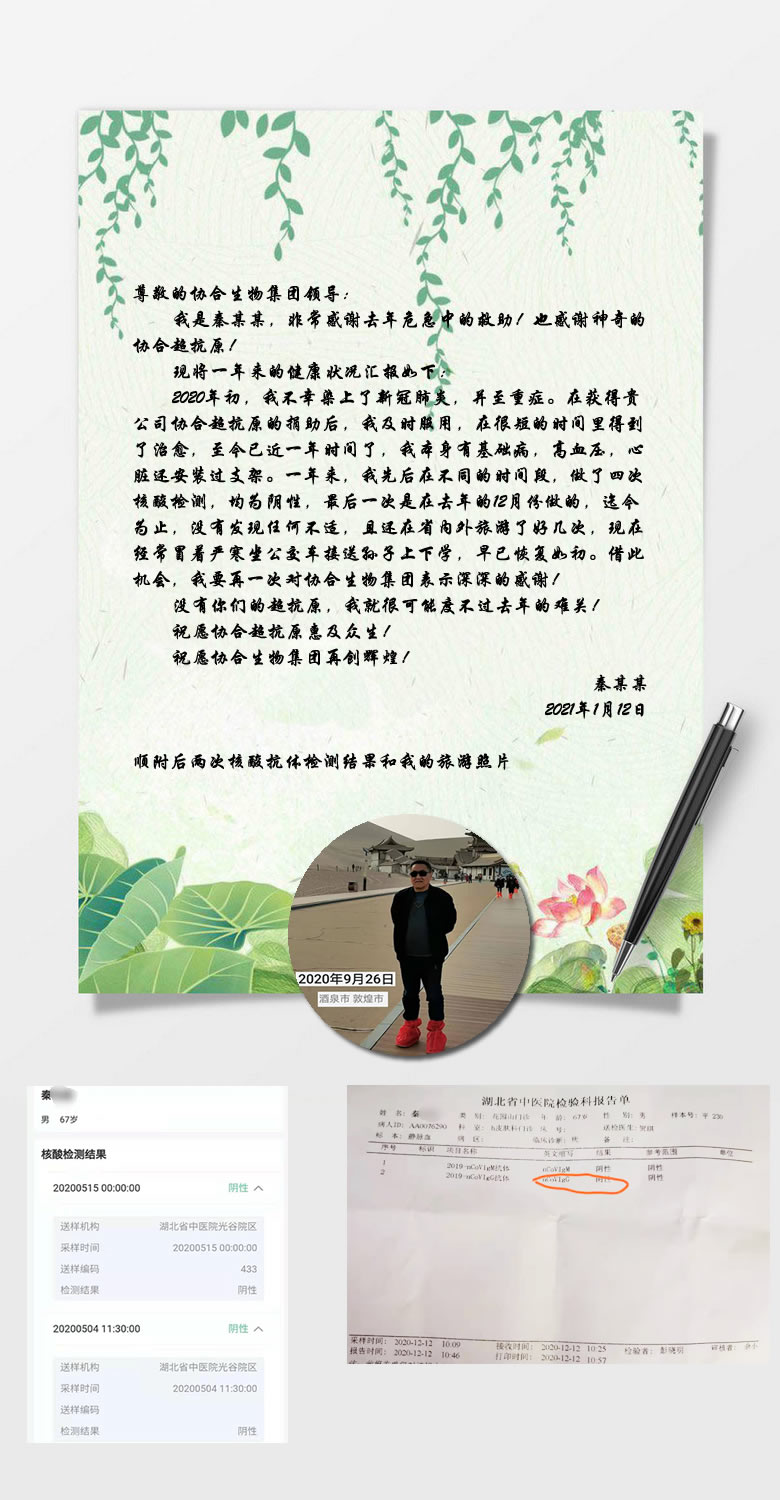 尊敬的协合生物集团领导：
我是秦某某，非常感谢去年危急中的救助！也感谢神奇的
协合超抗原！
现将一年来的健康状况汇报如下：
2020年初，我不幸染上了新冠肺炎，并至重症。在获得贵
公司协合超抗原的捐助后，我及时服用，在很短的时间里得到
了治愈，至今已近一年时间了，我本身有基础病，高血压，心
脏还安装过支架。一年来，我先后在不同的时间段，做了四次
核酸检测，均为阴性，最后一次是在去年的12月份做的，迄今
为止，没有发现任何不适，且还在省内外旅游了好几次，现在
经常冒着严寒坐公交车接送孙子上下学，早已恢复如初。借此
机会，我要再一次对协合生物集团表示深深的感谢！
没有你们的超抗原，我就很可能度不过去年的难关！
祝愿协合超抗原惠及众生！
祝愿协合生物集团再创辉煌！
秦某某
2021年1月12日
顺附后两次核酸抗体检测结果和我的旅游照片
2020年9月26日
酒泉市 敦煌市
秦
男 67岁
核酸检测结果
20200515 00:00:00 阴性
送样机构 湖北省中医院光谷院区
采样时间 20200515 00:00:00
送样编码 433
检测结果 阴性
20200504 11:30:00 阴性
送样机构 湖北省中医院光谷院区
采样时间 20200504 11:30:00
送样编码
检测结果 阴性
湖北省中医院检验科报告单
姓 名: 秦 类 别: 花园山门诊 年 龄: 67岁 性 别: 男 样本号: 平 236
病人ID: AA0076290 科 室: 皮肤科门诊 床 号: 送检医生:
标 本: 静脉血 病 区: 临床诊断: 备 注:
序号 标识 项目名称 英文缩写 结果 参考范围 单位
1 2019-nCoVIgM抗体 nCoVIgM 阴性 阴性
2 2019-nCoVIgG抗体 nCoVIgG 阴性 阴性
采样时间: 2020-12-12 10:09 接收时间: 2020-12-12 10:25 检验者: 彭晓明 审核者:
报告时间: 2020-12-12 10:46 打印时间: 2020-12-12 10:57